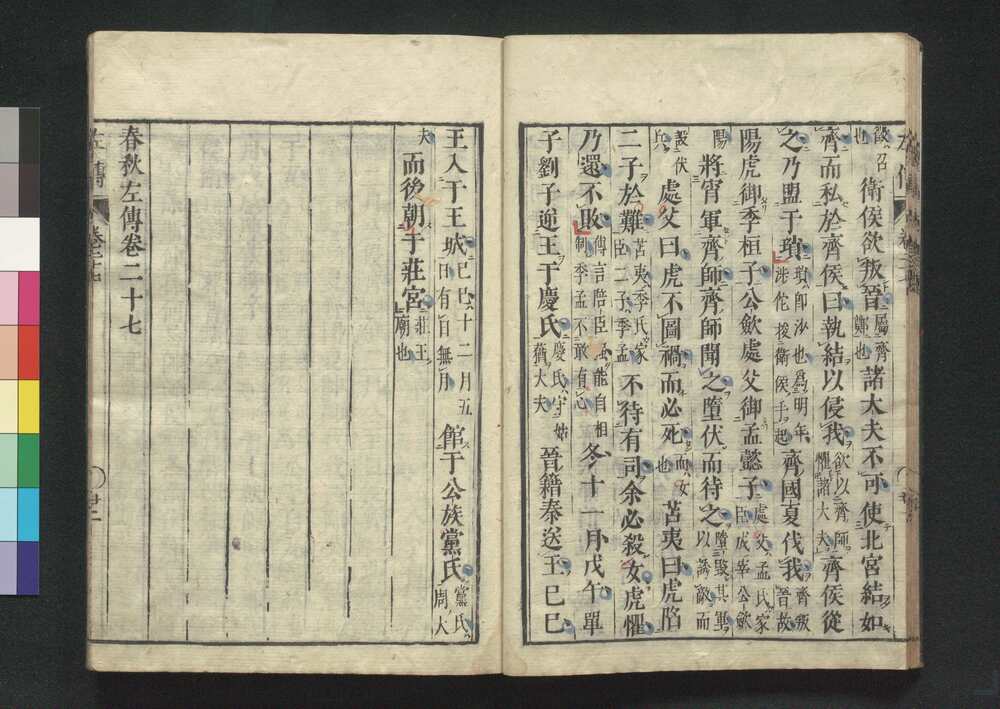 徵召也 衛侯欲叛晉屬齊鄭也諸大夫不可使北宮結如
齊而私於齊侯曰執結以侵我欲以齊師懼諸大夫齊侯從
之乃盟于瑣瑣卽沙也爲明年涉佗捘衛侯手起齊國夏伐我齊叛晉故
陽虎御季桓子公歛處父御孟懿子處父孟氏家臣成宰公歛
陽將宵軍齊師齊師聞之墮伏而待之墮毀其軍以誘敵而
設伏兵處父曰虎不圖禍而必死而女也苫夷曰虎陷
二子於難苫夷季氏家臣二子季孟不待有司余必殺女虎懼
乃還不敗傳言陪臣強能自相制季孟不敢有心冬十一月戊午單
子劉子逆王于慶氏慶氏守姑蕕大夫晉籍秦送王己巳
王入于王城己巳十二月五日有日無月館于公族黨氏黨氏周大
夫而後朝于莊宮莊王廟也
春秋左傳卷二十七
左傳
卷二十七